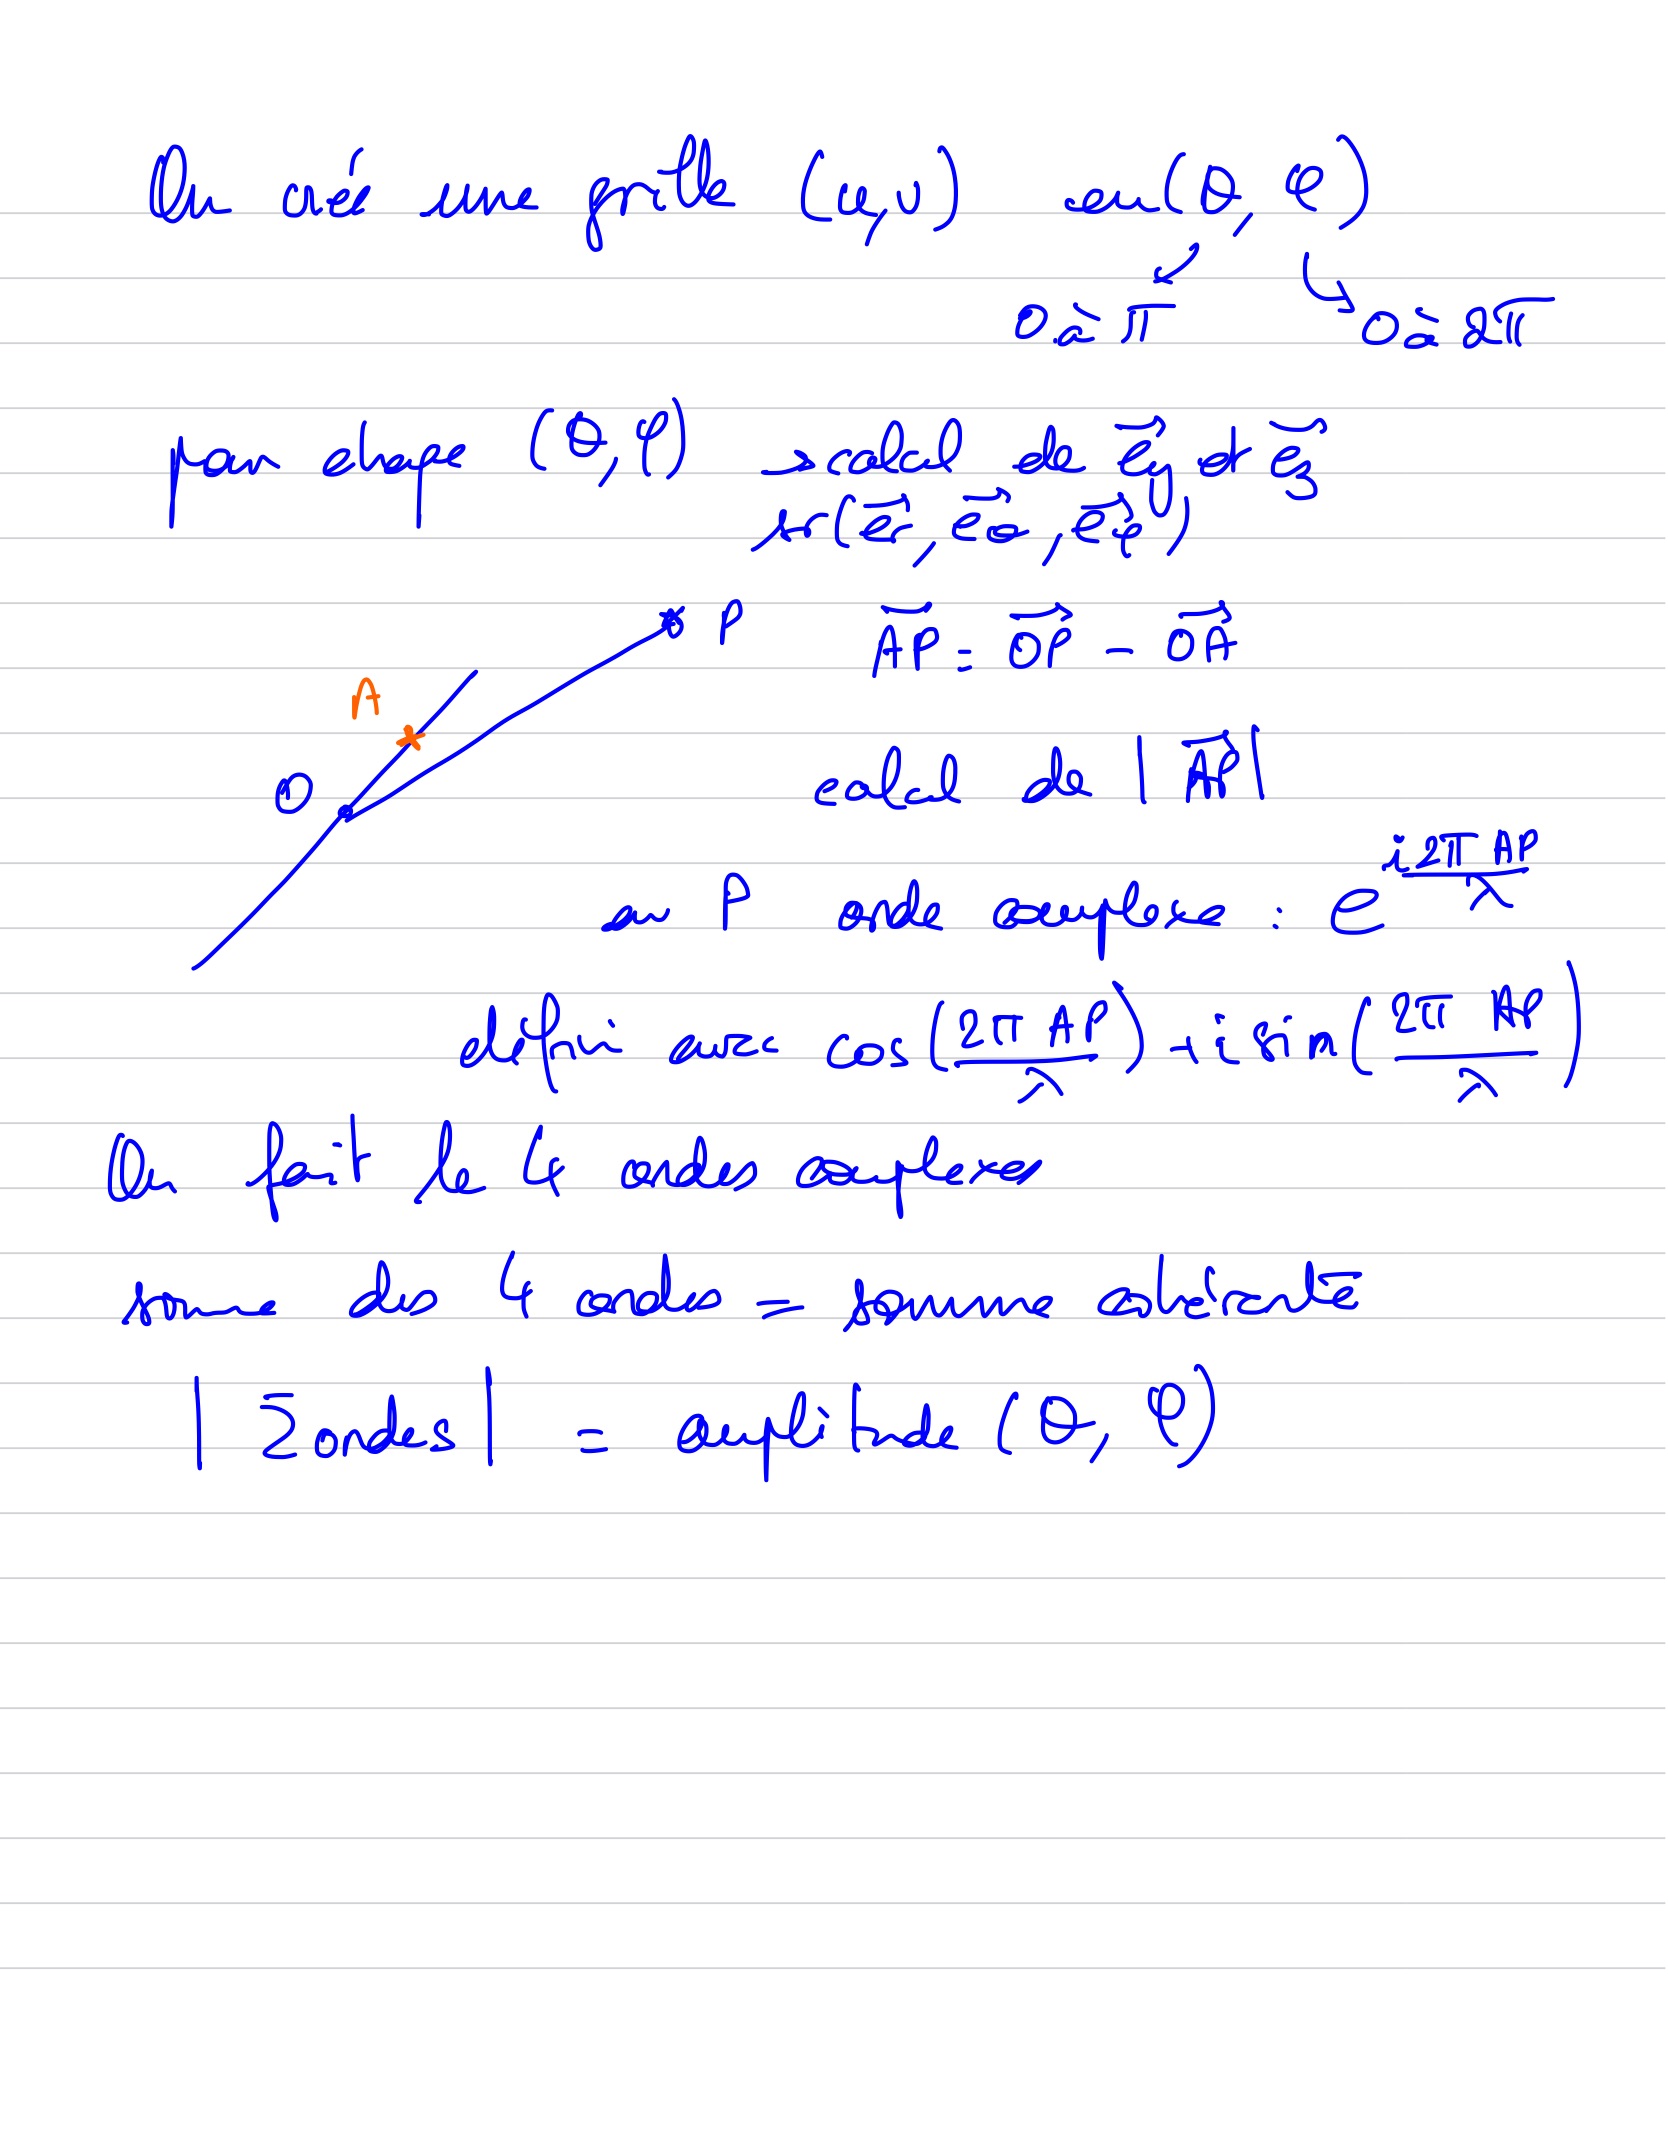 On crée une grille (u,v) en (θ, φ)
0 à π 0 à 2π
pour chaque (θ, φ) → calcul de e⃗y et e⃗z
sr (e⃗r, e⃗θ, e⃗φ)
P A⃗P⃗ = O⃗P⃗ - O⃗A⃗
A
O calcul de |A⃗P⃗|
en P onde complexe : e^(i2π AP/λ)
défini avec cos(2π AP/λ) + i sin(2π AP/λ)
On fait le 4 ondes complexes
somme des 4 ondes = somme cohérente
|Σondes| = amplitude (θ, φ)